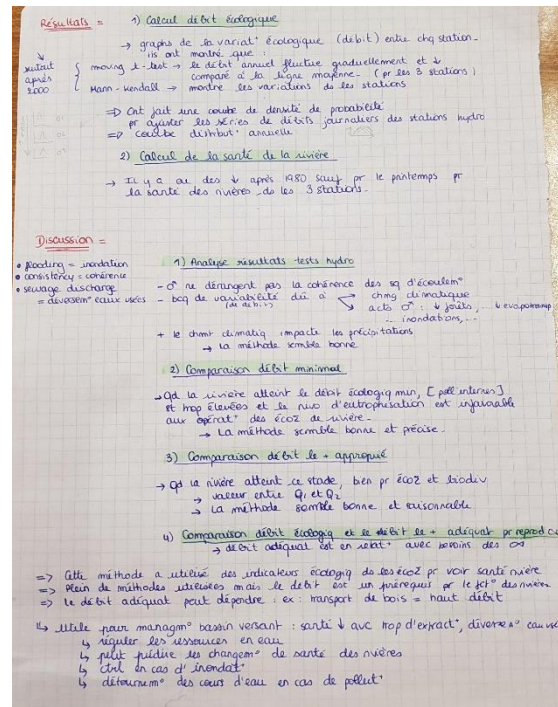 Résultats =
1) Calcul débit écologique
→ graphs de la variat° écologique (débit) entre chq station.
ils ont montré que :
surtout après 2000
moving t-test → le débit annuel fluctue graduellement et ↓
comparé à la ligne moyenne. (pr les 3 stations)
Mann-Kendall → montre les variations ds les stations
⇒ Ont fait une courbe de densité de probabilité
pr ajuster les séries de débits journaliers des stations hydro
⇒ courbe distribut° annuelle
2) Calcul de la santé de la rivière
→ Il y a eu des ↓ après 1980 sauf pr le printemps pr
la santé des rivières ds les 3 stations.
Discussion =
• flooding = inondation
• consistency = cohérence
• sewage discharge
= déversem° eaux usées
1) Analyse résultats tests hydro
- ♂ ne dérangent pas la cohérence des sq d'écoulem°
- bcq de variabilité dû à → chmg climatique
(de débit)
→ acts ♂ : ↓ forêts, ... ↓ evapotransp
... inondations, ...
+ le chmt climatiq impacte les précipitations
→ la méthode semble bonne
2) Comparaison débit minimal
→ Qd la rivière atteint le débit écologiq min, [poll internes]
st trop élevées et le nivo d'eutrophisation est infavorable
aux opérat° des éco2 de rivière.
→ La méthode semble bonne et précise.
3) Comparaison débit le + approprié
→ Qd la rivière atteint ce stade, bien pr éco2 et biodiv
→ valeur entre Q1 et Q2
→ La méthode semble bonne et raisonnable
4) Comparaison débit écologiq et le débit le + adéquat pr reprod
→ débit adéquat est en relat° avec besoins des
=> Cette méthode a utilisé des indicateurs écologiq ds les éco2 pr voir santé rivière
=> Plein de méthodes utilisées mais le débit est un prérequis pr le fct° des rivière
=> le débit adéquat peut dépendre : ex : transport de bois = haut débit
↳ Utile pour managm° bassin versant : santé ↓ avc trop d'extract°, diverses° eau us
↳ réguler les ressources en eau
↳ peut prédire les changem° de santé des rivières
↳ ctrl en cas d'inondat°
↳ détournem° des cours d'eau en cas de pollut°